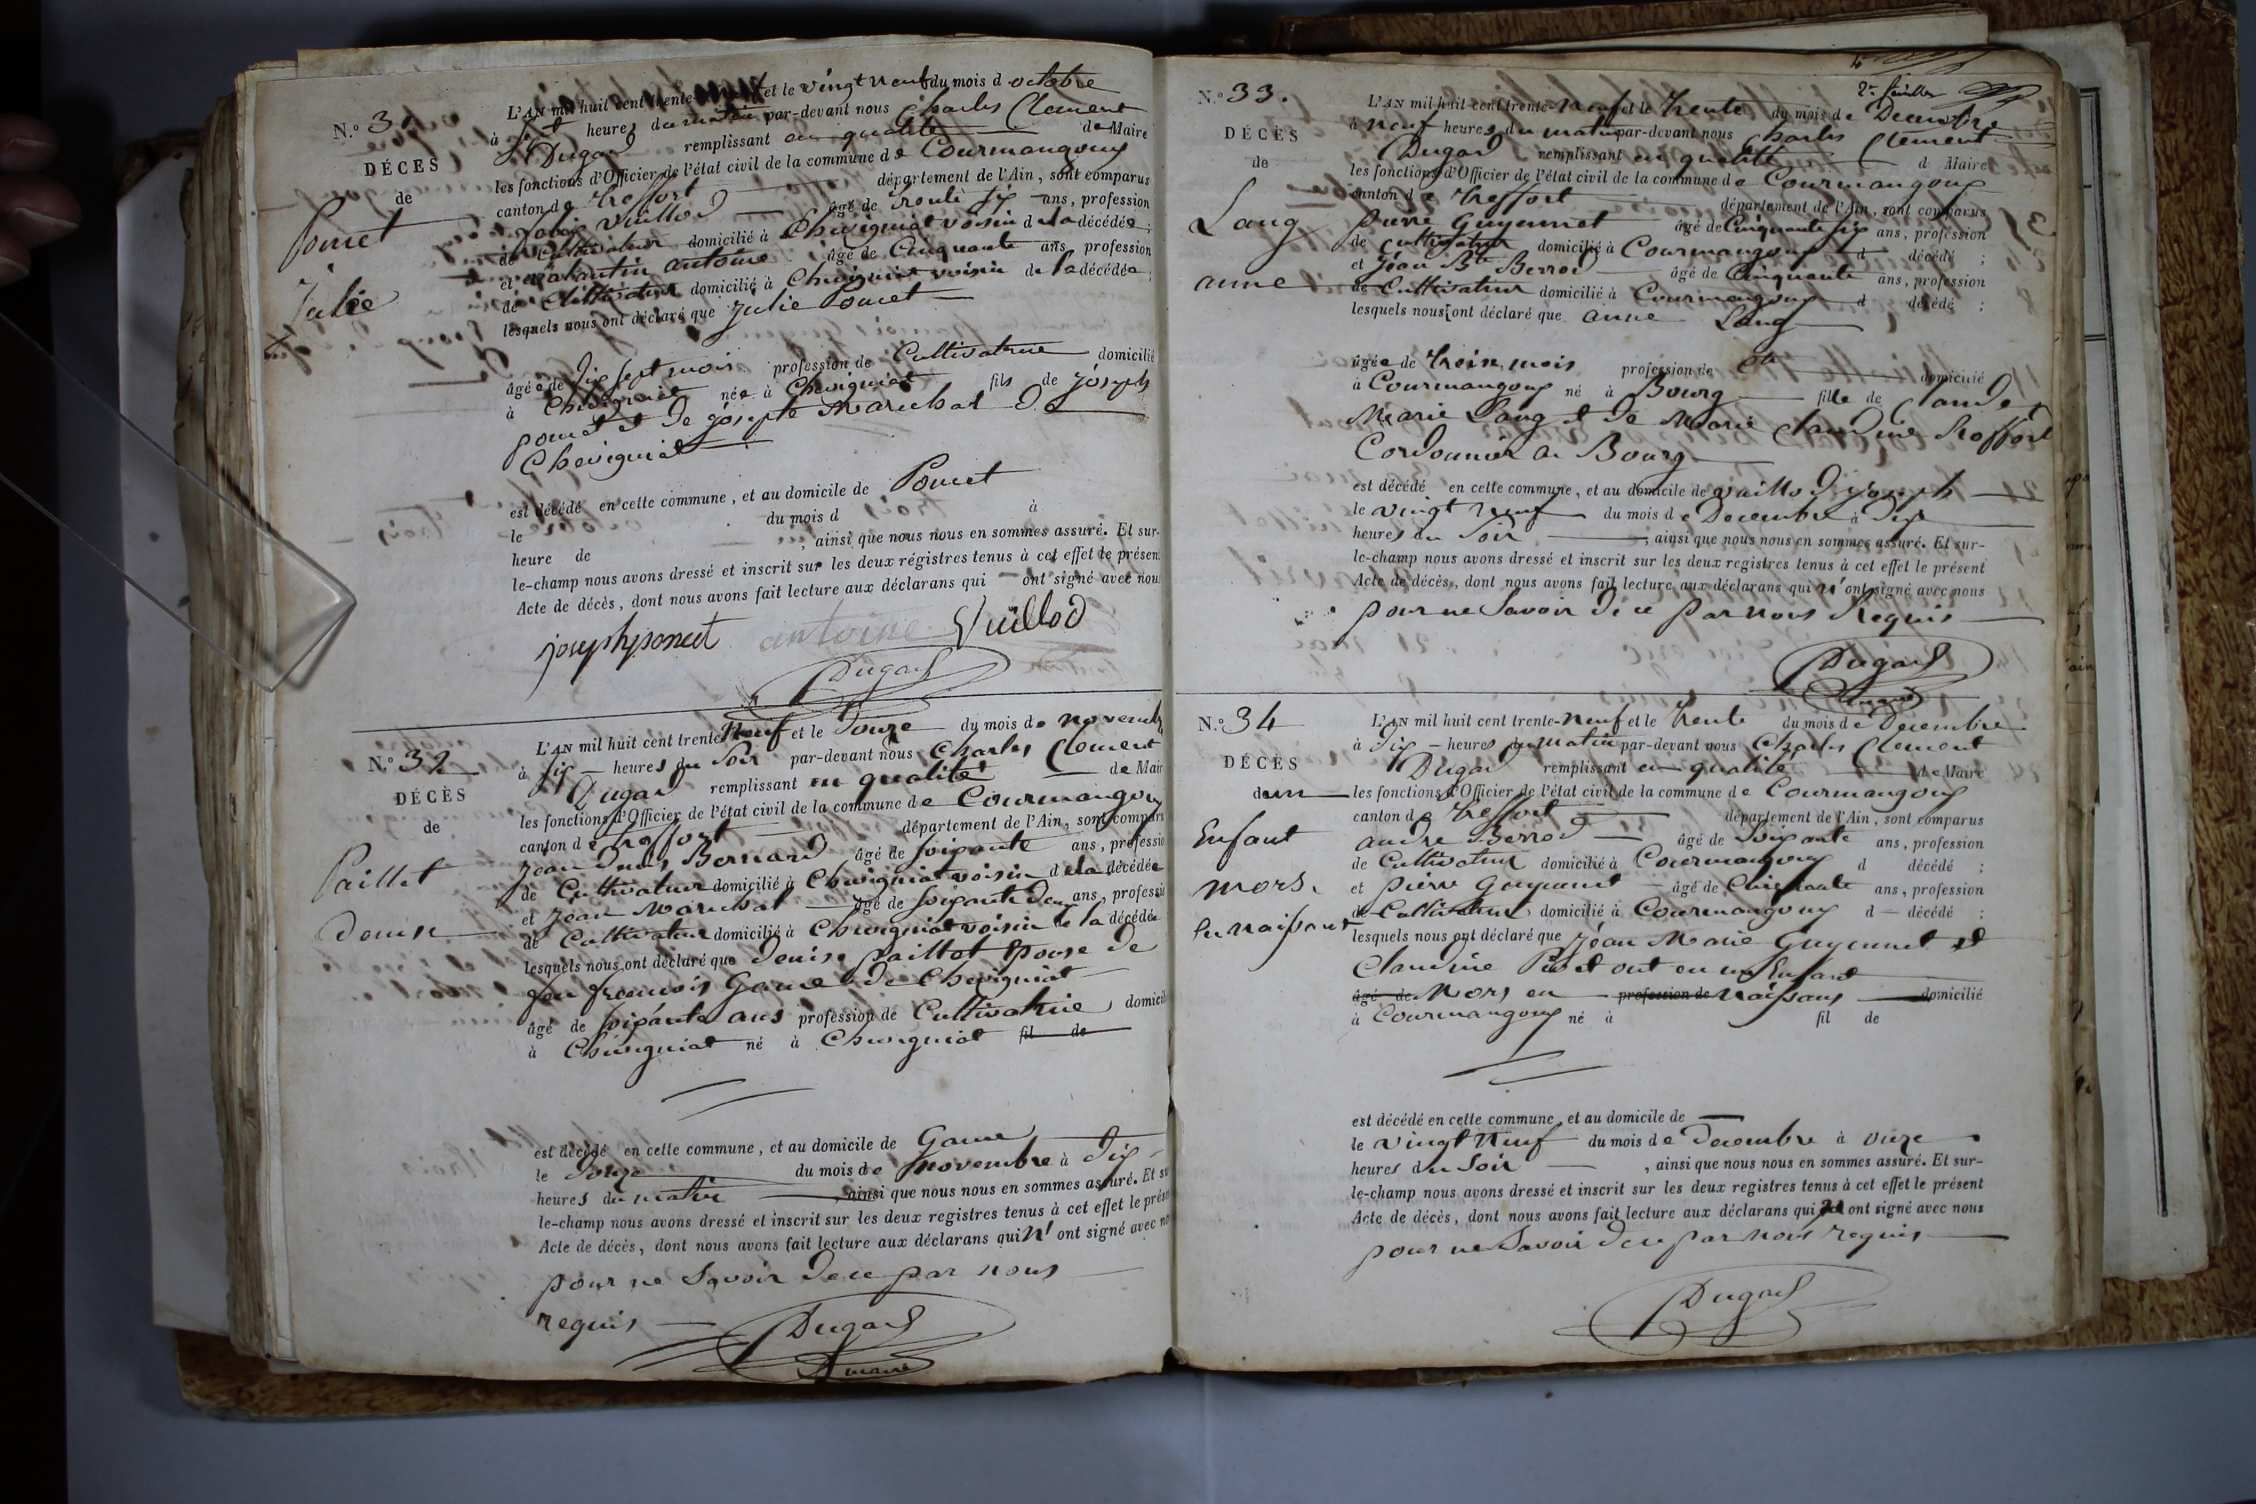 N.° 31
DÉCES
de
Poncet
Julie
L'AN mil huit cent trente- et le vingt neuf du mois d octobre
à sept heures du matin par-devant nous Charles Clement
Dugad remplissant en qualité de Maire
les fonctions d'Officier de l'état civil de la commune de Courmangoux
canton de Treffort département de l'Ain, sont comparus
Vuillod âgé de trente six ans, profession
de Cultivateur domicilié à Chevignat voisin de la décédée;
et Valantin antoine âgé de Cinquante ans, profession
de Cultivateur domicilié à Chevignat voisin de la décédée;
lesquels nous ont déclaré que Julie Poncet
âgée de dix sept mois profession de Cultivatrice domicilié
à Chevigniat née à Chevigniat fils de Joseph
poncet et de Josephte Marechal d
Chevigniat
est décédé en cette commune, et au domicile de Poncet
le du mois d à
heure de , ainsi que nous nous en sommes assuré. Et sur-
le-champ nous avons dressé et inscrit sur les deux régistres tenus à cet effet le présent
Acte de décès, dont nous avons fait lecture aux déclarans qui ont signé avec nou
joseph poncet antoine Vuillod
Dugad
N.° 32
DÉCÈS
de
Paillet
denise
L'AN mil huit cent trente neuf et le douze du mois de novembre
à six heures du soir par-devant nous Charles Clement
Dugad remplissant en qualité de Mair
les fonctions d'Officier de l'état civil de la commune de Courmangoux
canton de Treffort département de l'Ain, sont comparu
Jean Bernard âgé de soixante ans, professio
de Cultivateur domicilié à Chevigniat voisin de la décédée
et Jean Marechal âgé de soixante deux ans, professio
de Cultivateur domicilié à Chevigniat voisin de la décédée
lesquels nous ont déclaré que denise paillet Epouse de
feu francois Game de Chevigniat
âgé de soixante ans profession de Cultivatrice domicil
à Chevigniat né à Chevigniat fil de
est décédé en cette commune, et au domicile de Game
le douze du mois de novembre à dix
heures du matin , ainsi que nous nous en sommes assuré. Et su
le-champ nous avons dressé et inscrit sur les deux registres tenus à cet effet le prése
Acte de décès, dont nous avons fait lecture aux déclarans qui n' ont signé avec no
pour ne savoir de ce par nous
requis
Dugad
maire
2e feuillet
N.° 33.
DÉCÈS
de
Lang
anne
L'AN mil huit cent trente-neuf et le trente du mois de Decembre
à neuf heures du matin par-devant nous Charles Clement
Dugad remplissant en qualité d Maire
les fonctions d'Officier de l'état civil de la commune de Courmangoux
canton de Treffort département de l'Ain, sont comparus
pierre Guyennet âgé de Cinquante six ans, profession
de Cultivateur domicilié à Courmangoux d décédé ;
et Jean Bte Berrod âgé de Cinquante ans, profession
de Cultivateur domicilié à Courmangoux d décédé ;
lesquels nous ont déclaré que anne Lang
âgée de trois mois profession de domicilié
à Courmangoux né à Bourg fille de Claude
Marie Lang et de Marie Claudine
Cordonnier a Bourg
est décédé en cette commune, et au domicile de vuillod joseph
le vingt neuf du mois de Decembre à dix
heures du soir , ainsi que nous nous en sommes assuré. Et sur-
le-champ nous avons dressé et inscrit sur les deux registres tenus à cet effet le présent
Acte de décès, dont nous avons fait lecture aux déclarans qui n' ont signé avec nous
pour ne savoir de ce par nous Requis
Dugad
maire
N.° 34
DÉCÈS
d'un
Enfant
mors
en naissant
L'AN mil huit cent trente-neuf et le trente du mois de Decembre
à dix heures du matin par-devant nous Charles Clement
Dugad remplissant en qualité de Maire
les fonctions d'Officier de l'état civil de la commune de Courmangoux
canton de Treffort département de l'Ain, sont comparus
andré Berrod âgé de soixante ans, profession
de Cultivateur domicilié à Courmangoux d décédé ;
et pierre Guyennet âgé de Cinquante ans, profession
de Cultivateur domicilié à Courmangoux d décédé ;
lesquels nous ont déclaré que Jean Marie Guyennet et
Claudine ont eu un Enfant
âgé de Mors en profession de naissans domicilié
à Courmangoux né à fil de
est décédé en cette commune, et au domicile de
le vingt neuf du mois de Decembre à onze
heures du soir , ainsi que nous nous en sommes assuré. Et sur-
le-champ nous avons dressé et inscrit sur les deux registres tenus à cet effet le présent
Acte de décès, dont nous avons fait lecture aux déclarans qui ont signé avec nous
pour ne savoir de ce par nous requis
Dugad